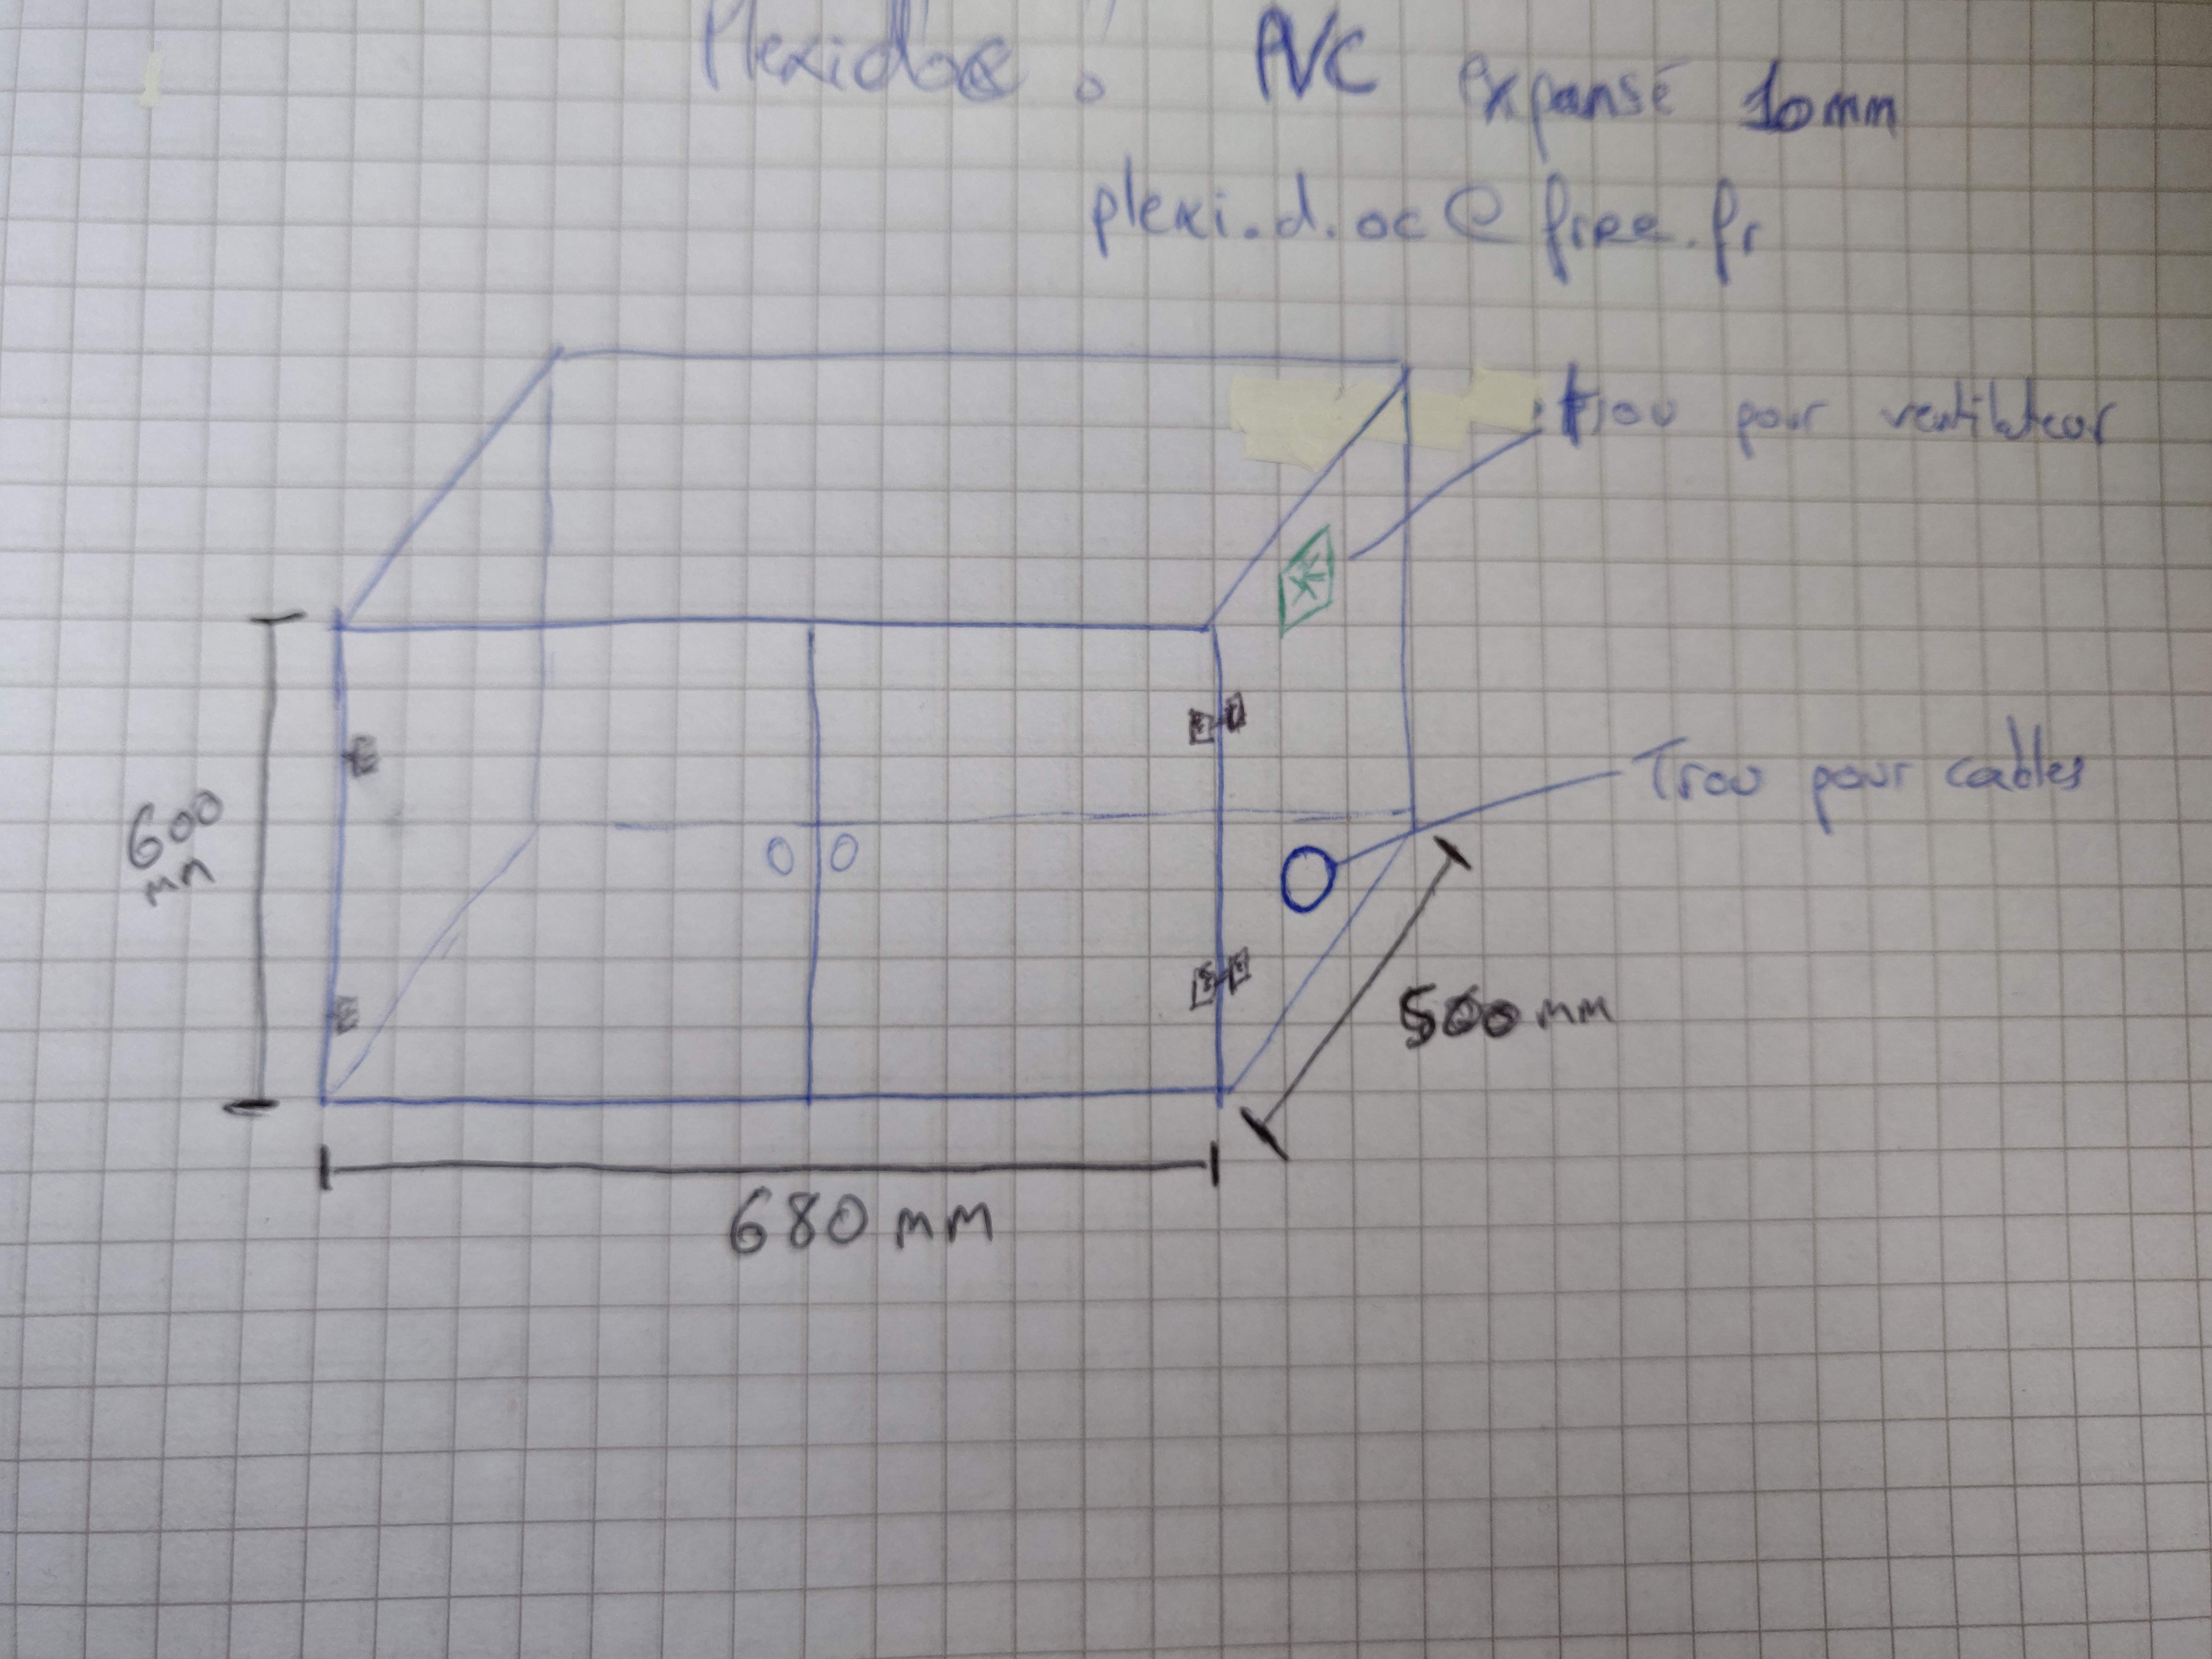 Plexidoc : PVC expansé 10mm
plexi.d.oc@free.fr
trou pour ventilateur
Trou pour cables
600
mm
500 mm
680 mm